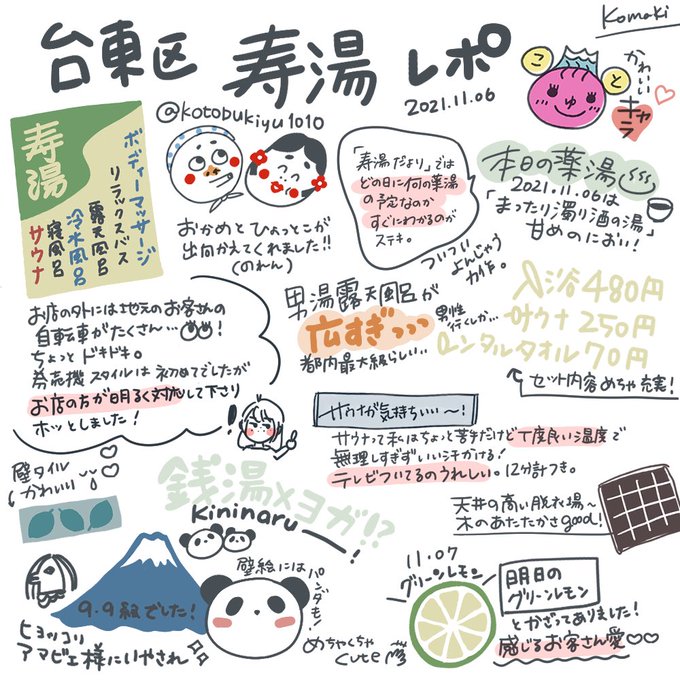 Komaki
台東区 寿湯 レポ
2021.11.06
@kotobukiyu1010
こ
と
ゆ
かわいい
キャラ
寿湯
ボディーマッサージ
リラックスバス
露天風呂
冷水風呂
寝風呂
サウナ
おかめとひょっとこが
出向かえてくれました!!
(のれん)
「寿湯だより」では
どの日に何の薬湯
の予定なのか
すぐにわかるのが
ステキ。
ついつい
よんじゃう
力作。
本日の薬湯
2021.11.06は
「まったり濁り酒の湯」
甘めのにおい!
お店の外には地元のお客さんの
自転車がたくさん…!
ちょっとドキドキ。
券売機スタイルは初めてでしたが
お店の方が明るく対応して下さり
ホッとしました!
!
男湯露天風呂が
広すぎっっっ
都内最大級らしい…
男性
行くしか…
入浴480円
サウナ250円
レンタルタオル70円
セット内容めちゃ充実!
サウナが気持ちいい〜!
サウナって私はちょっと苦手だけど丁度良い温度で
無理しすぎずいい汗かける!
テレビついてるのうれしい。12分計つき。
壁タイル
かわいい
銭湯×ヨガ!?
Kininaru
!
天井の高い脱衣場〜
木のあたたかさgood!
9.9級でした!
ヒョッコリ
アマビエ様にいやされ
壁絵には
パンダも!
めちゃくちゃ
cute
11.07
グリーンレモン
明日の
グリーンレモン
とかざってありました!
感じるお客さん愛♡♡